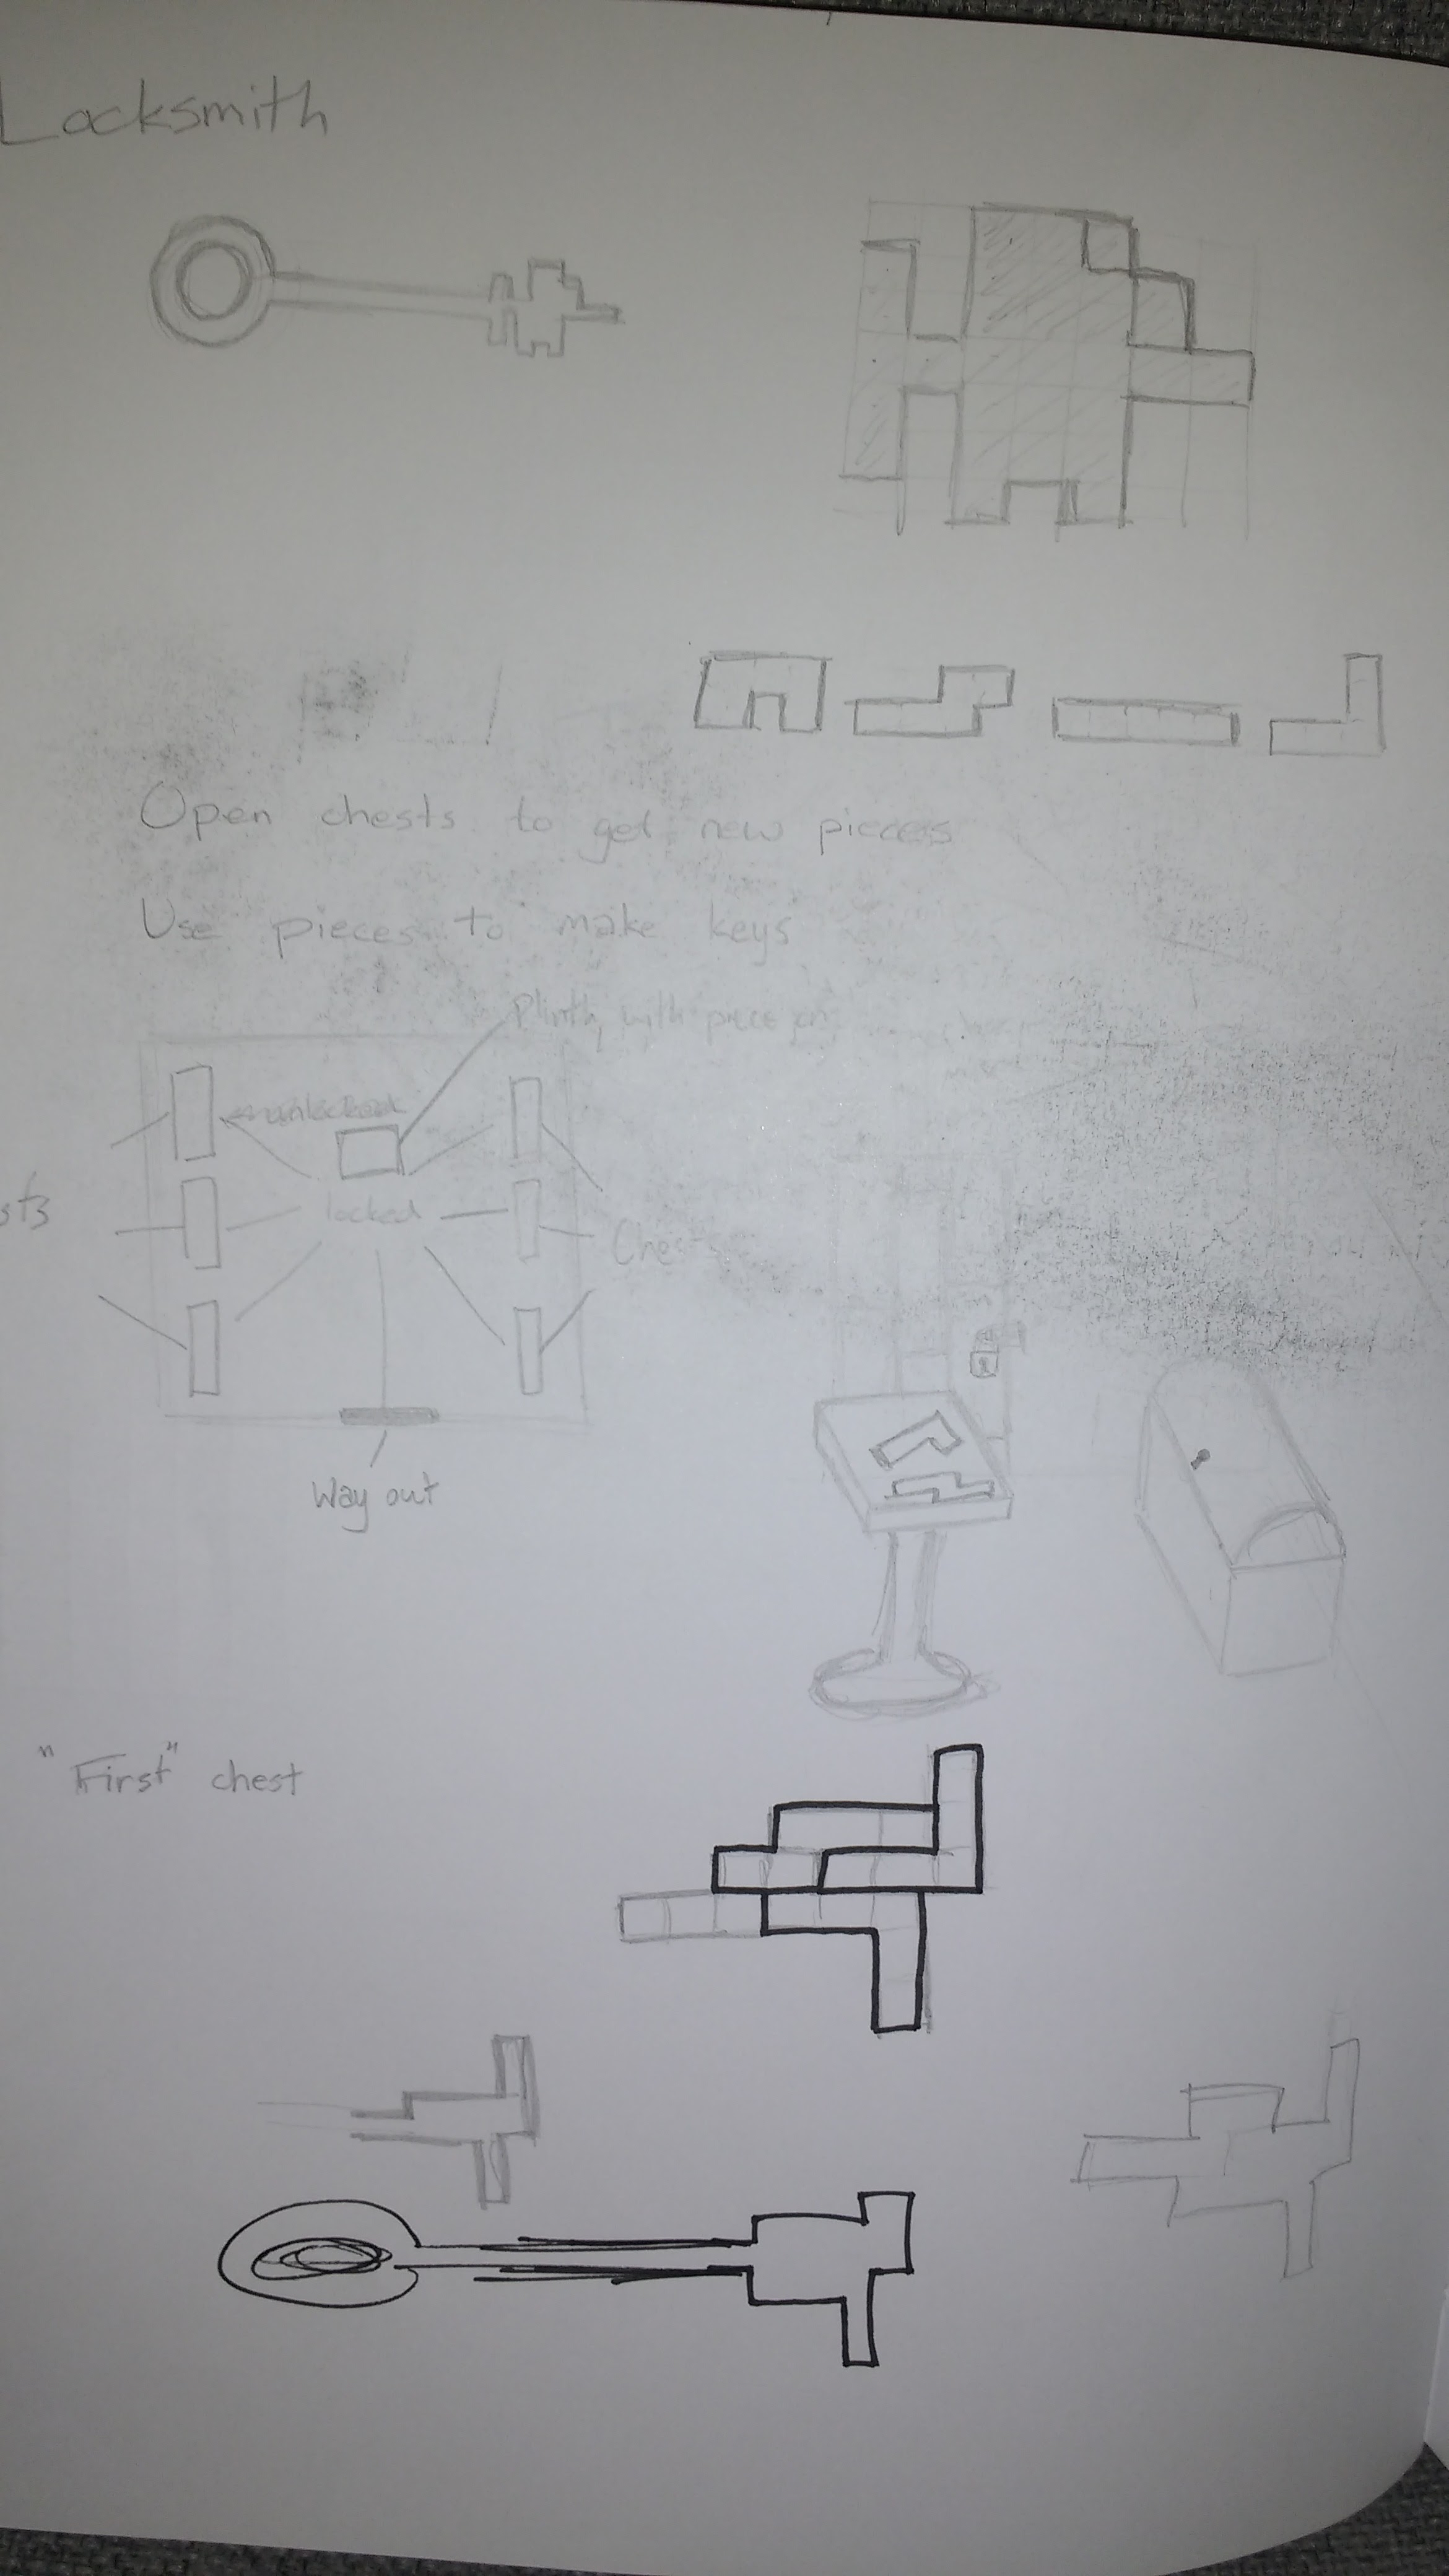 Locksmith
Open chests to get new pieces
Use pieces to make keys
Plinth with piece on
unlocked
locked
sts
Chest
Way out
"First" chest